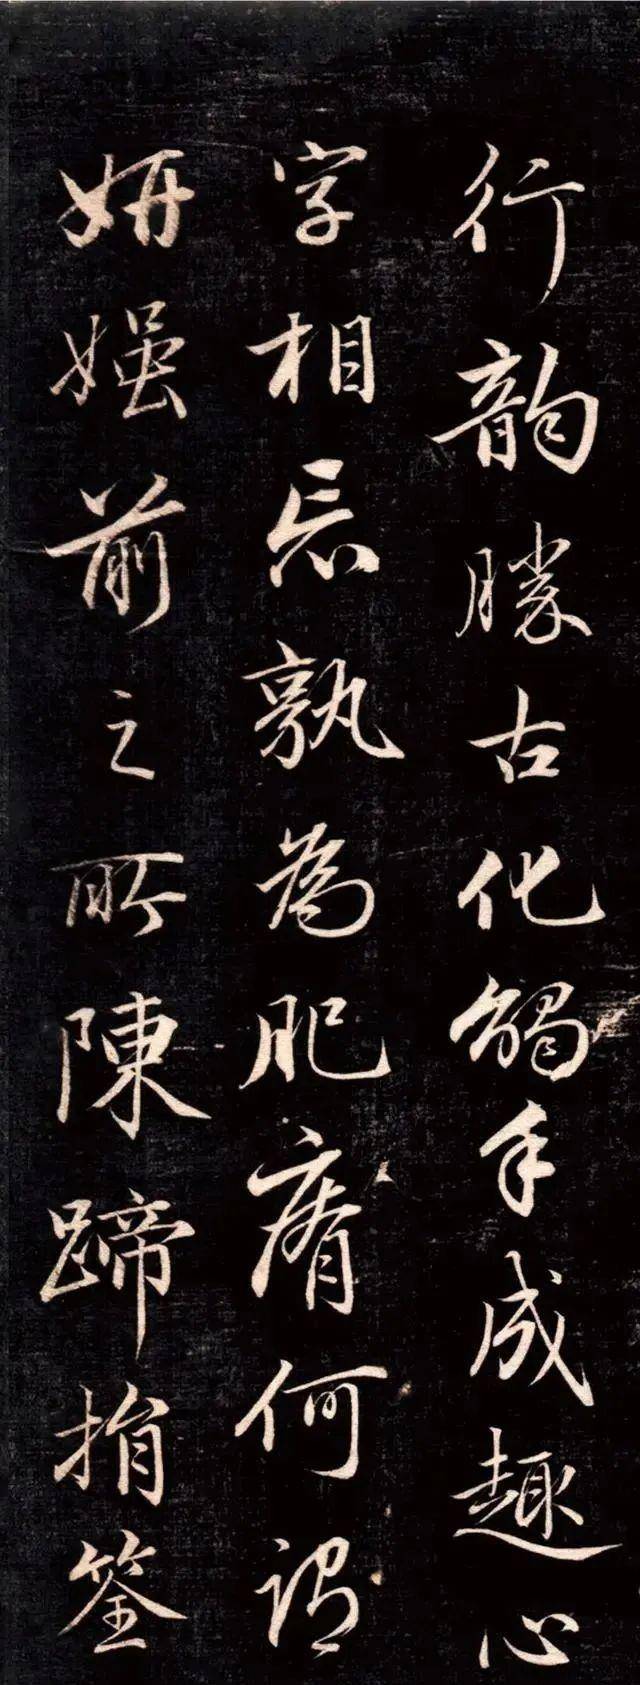 行韵勝古化觸手成趣心
字相忘孰為肥瘠何謂
妍媸前之所陳蹄捐筌